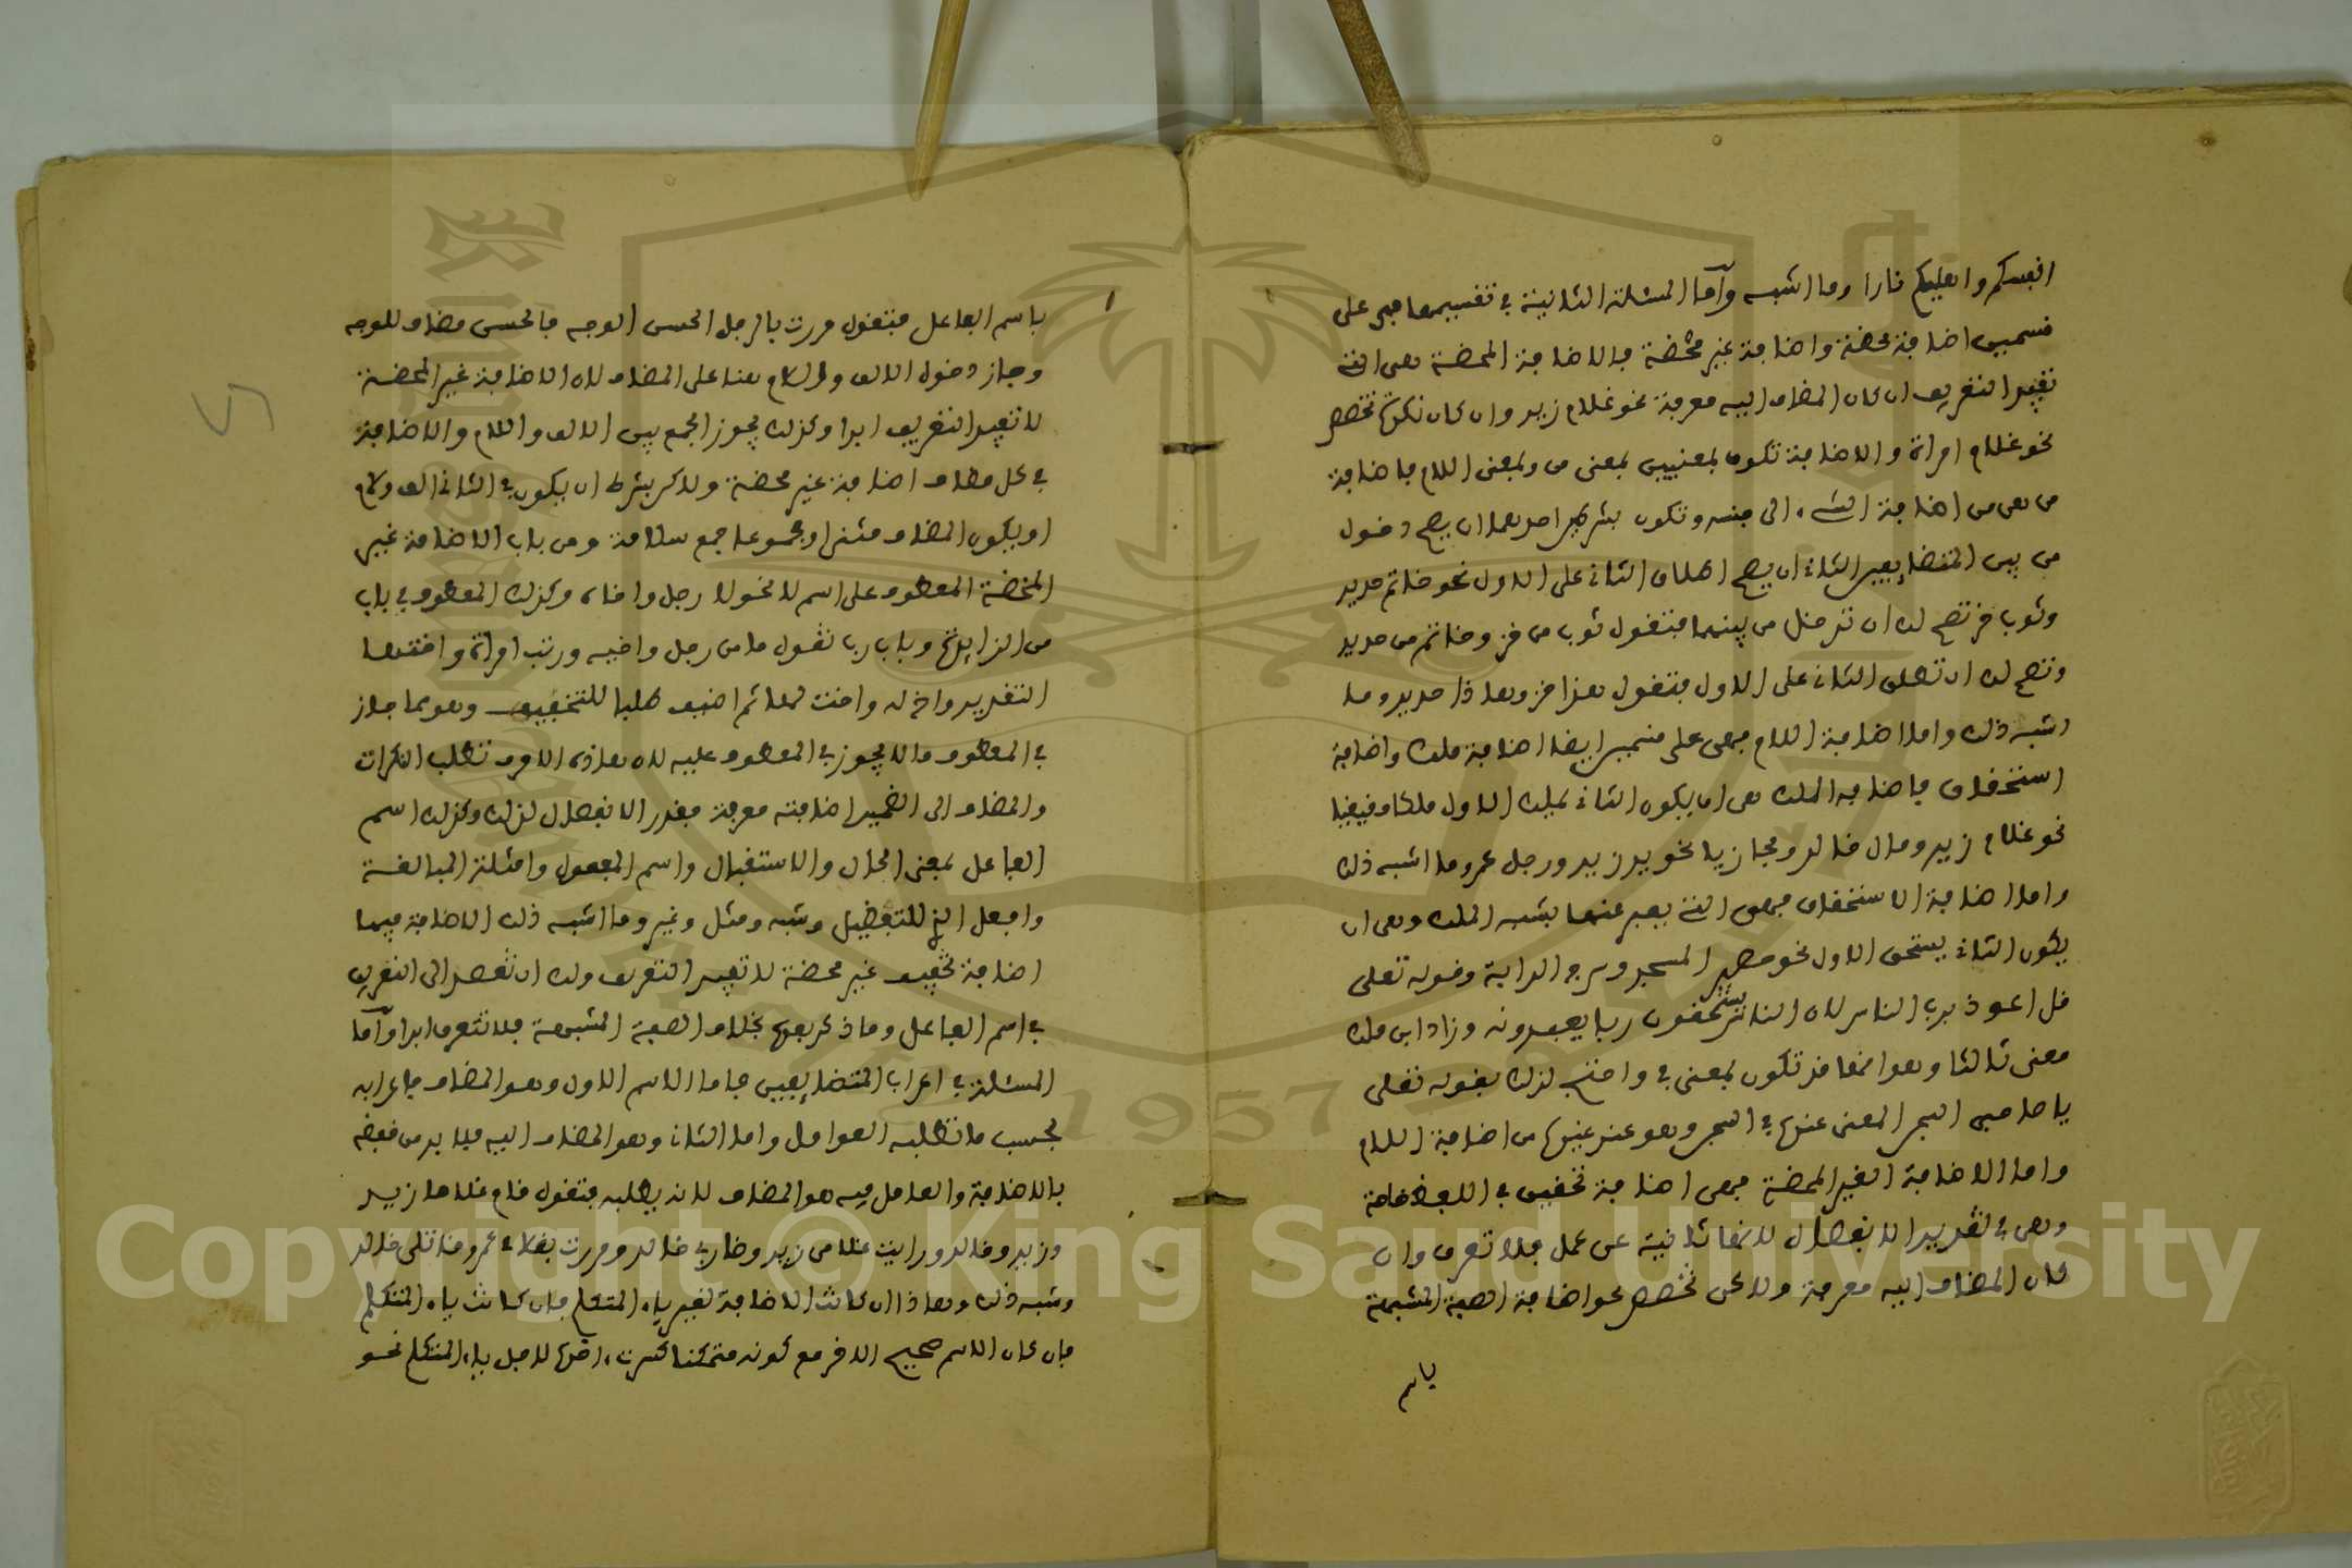 انفسكم واهليكم نارا وما اشبه وأما المسئلة الثانية في تقسيمها فهي على
قسمين اضافة محضة واضافة غير محضة فالاضافة المحضة هي التي
تفيد التعريف ان كان المضاف اليه معرفة نحو غلام زيد وان كان نكرة تخصص
نحو غلام امراة والاضافة تكون بمعنيين بمعنى من وبمعنى اللام فاضافة
من هي من اضافة الشيء الى جنسه وتكون بشرطين احدهما ان يصح دخول
من بين المتضايفين الثاني ان يصح اطلاق الثاني على الاول نحو خاتم حديد
وثوب خز تصح لك ان تدخل من بينهما فتقول ثوب من خز وخاتم من حديد
وتصح لك ان تطلق الثاني على الاول فتقول هذا خز وهاذا حديد وما
اشبه ذلك واما اضافة اللام فهي على قسمين ايضا اضافة ملك واضافة
استحقاق فاضافة الملك هي ان يكون الثاني يملك الاول ملكا حقيقيا
نحو غلام زيد ومال خالد ومجازيا نحو يد زيد ورجل عمرو وما اشبه ذلك
واما اضافة الاستحقاق فهي التي يعبر عنها بشبه الملك وهي ان
يكون الثاني يستحق الاول نحو حصير المسجد وسرج الدابة وقوله تعلى
قل اعوذ برب الناس لان الناس يستحقون ربا يعبدونه وزاد ابن ملك
معنى ثالثا وهو انها قد تكون بمعنى في واحتج لذلك بقوله تعلى
يا صاحبي السجن المعنى عنده في السجن وهو عند غيره من اضافة اللام
واما الاضافة الغير المحضة فهي اضافة تخفيف في اللفظ خاصة
وهي في تقدير الانفصال لانها ثانية عن عمل فلا تعرف وان
كان المضاف اليه معرفة ولاكن تخصص نحو اضافة الصفة المشبهة
باسم
باسم الفاعل فتقول مررت بالرجل الحسن الوجه فالحسن مضاف للوجه
وجاز دخول الالف والسلام هنا على المضاف لان الاضافة غير المحضة
لا تفيد التعريف ابدا وكذلك يجوز الجمع بين الالف واللام والاضافة
في كل مضاف اضافة غير محضة ولاكن بشرط ان يكون في الثاني الف ولام
او يكون المضاف مثنى او مجموعا جمع سلامة ومن باب الاضافة غير
المحضة المعطوف على اسم لا نحو لا رجل واخاه وكذلك المعطوف في باب
من الزايدة وباب رب تقول ما من رجل واخيه ورب امراة واختها
التقدير واخ له واخت لها ثم اضيف طلبا للتخفيف وهو مما جاز
في المعطوف ما لا يجوز في المعطوف عليه لان هاذه الاحرف تطلب النكرات
والمضاف الى الضمير اضافته معرفة فقدر الانفصال لذلك وكذلك اسم
الفاعل بمعنى الحال والاستقبال واسم المفعول وامثلة المبالغة
وافعل التي للتفضيل وشبه ومثل وغير وما اشبه ذلك الاضافة فيها
اضافة تخفيف غير محضة لا تفيد التعريف ولك ان تقصد الى التعريف
في اسم الفاعل وما ذكر بعده بخلاف الصفة المشبهة فلا تتعرف ابدا وأما
المسئلة في اعراب المتضايفين فاما الاسم الاول وهو المضاف فاعرابه
بحسب ما تطلبه العوامل واما الثاني وهو المضاف اليه فلا بد من خفضه
بالاضافة والعامل فيه هو المضاف لانه يطلبه فتقول قام غلاما زيد
وزيد وخالد ورايت غلامي زيد وضاربي خالد ومررت بغلامي عمرو وقاتلي خالد
وشبه ذلك وهاذا ان كانت الاضافة لغير ياء المتكلم فان كانت ياء المتكلم
فان كان الاسم صحيح الاخر مع كونه متمكنا كسرت اخره لاجل ياء المتكلم نحو